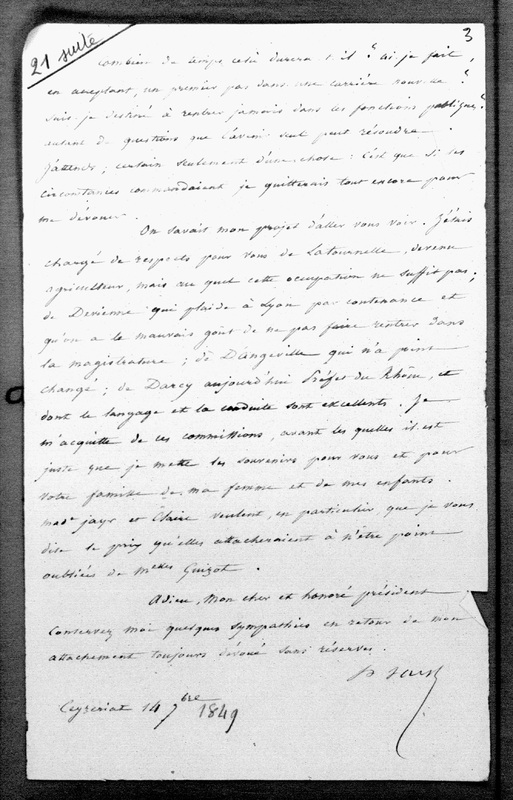 21 suite
3
combien de temps cela durera-t-il ? ai-je fait,
en acceptant, un premier pas dans une carrière nouvelle ?
suis-je destiné à rentrer jamais dans les fonctions publiques ?
autant de questions que l'avenir seul peut résoudre.
J'attends ; certain seulement d'une chose : c'est que si les
circonstances commandaient je quitterais tout encore pour
me dévouer.
On savait mon projet d'aller vous voir. J'étais
chargé de respects pour vous de Latournelle, devenu
agriculteur, mais au quel cette occupation ne suffit pas ;
de Devienne qui plaide à Lyon par contenance et
qu'on a le mauvais goût de ne pas faire rentrer dans
la magistrature ; de D'angeville qui n'a point
changé ; de Darcy aujourd'hui Préfet du Rhône, et
dont le langage et la conduite sont excellents. Je
m'acquitte de ces commissions, avant les quelles il est
juste que je mette les souvenirs pour vous et pour
votre famille de ma femme et de mes enfants.
made jayr et Claire veulent, en particulier que je vous
dise le prix qu'elles attacheraient à n'être point
oubliées de Melles Guizot.
Adieu, mon cher et honoré président
Conservez moi quelques sympathies en retour de mon
attachement toujours dévoué sans réserves.
Jayr
Ceyzeriat 14 7bre 1849